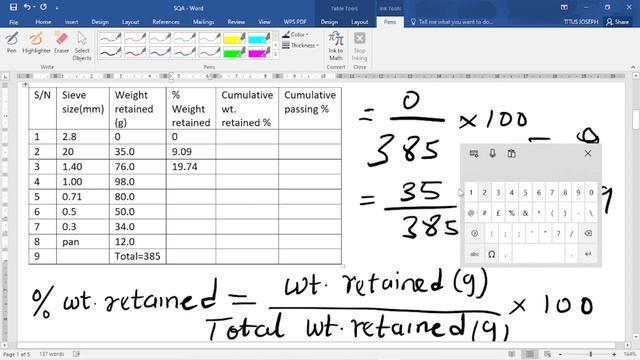 SQA - Word
Table Tools
Ink Tools
TITUS JOSEPH
File Home Insert Design Layout References Mailings Review View WPS PDF Foxit PDF Design Layout Pens Tell me what you want to do... Share
Pen Highlighter Eraser Select Objects
Color
Thickness
Start Inking
Write Pens Close
S/N Sieve size(mm) Weight retained (g) % Weight retained Cumulative wt. retained % Cumulative passing %
1 2.8 0 0
2 20 35.0 9.09
3 1.40 76.0 19.74
4 1.00 98.0
5 0.71 80.0
6 0.5 50.0
7 0.3 34.0
8 pan 12.0
9 Total=385
= 0/385 × 100
= 35/385
1 2 3 4 5 6 7 8 9 0
@ # £ % & * ( ) - \
! ; : ' " ? /
abc Ω , .
% wt. retained = wt. retained (g)/Total wt. retained (g) × 100
Page 1 of 5 137 words 164%